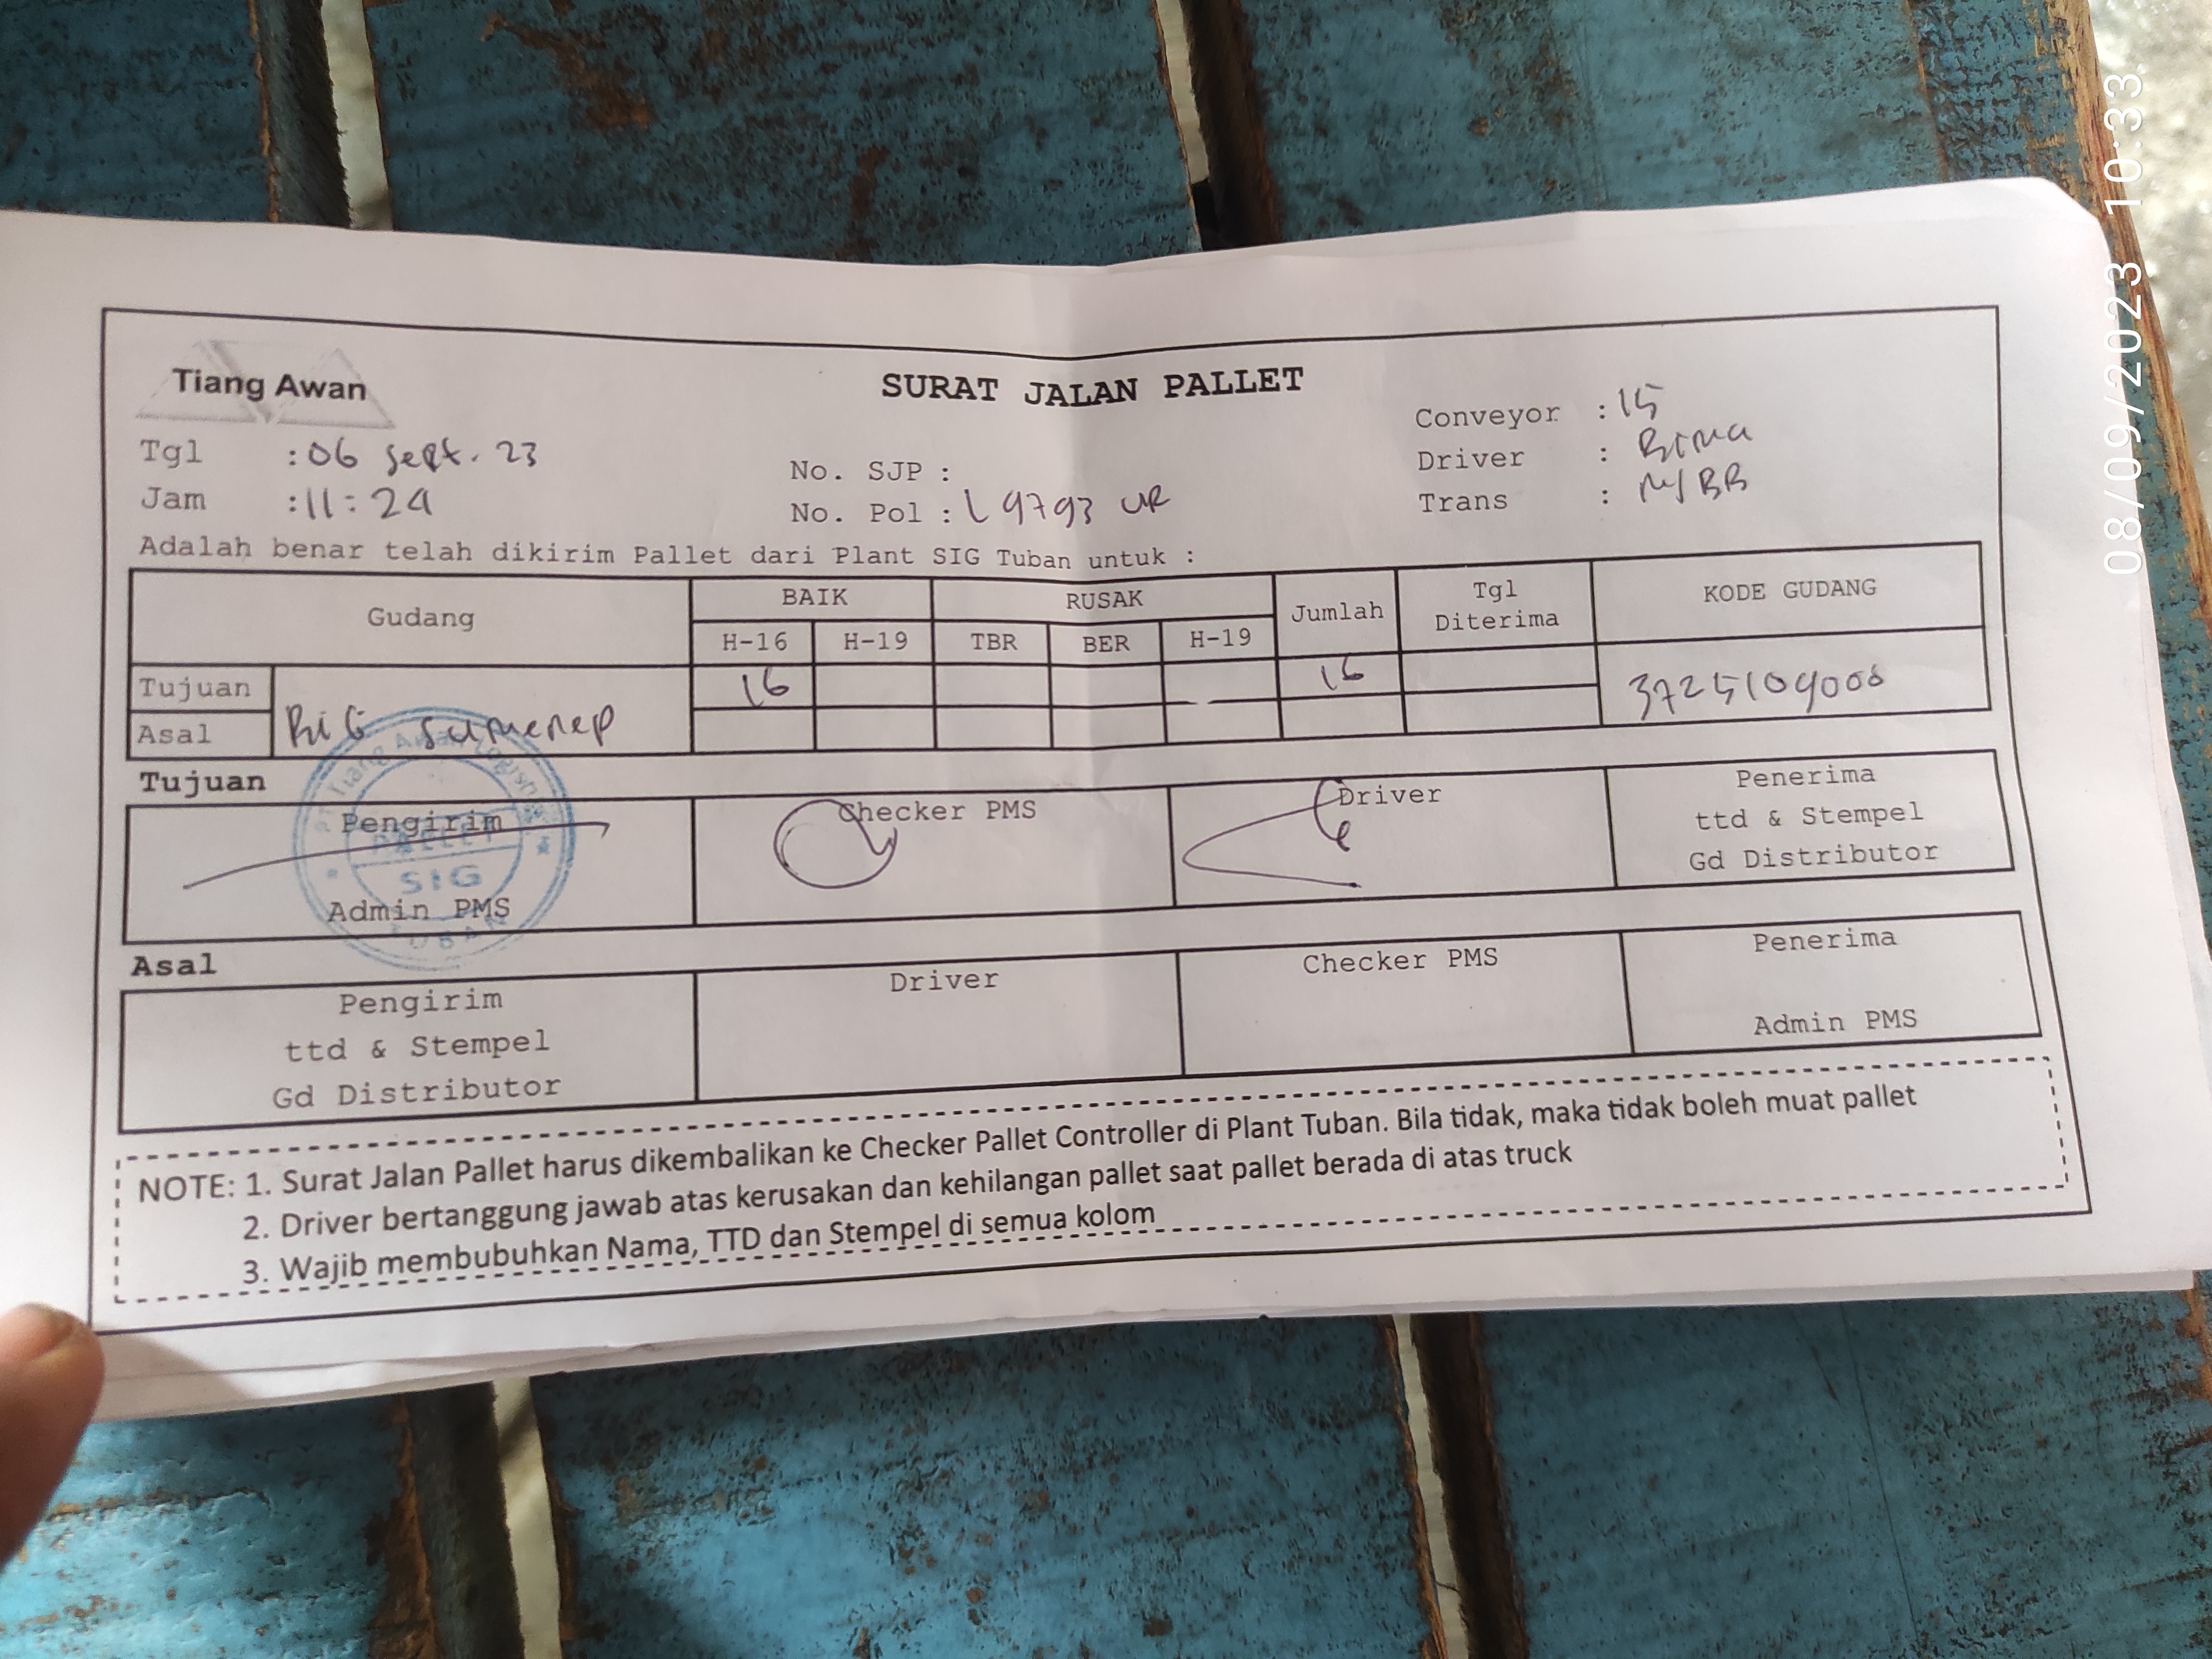 Tiang Awan
SURAT JALAN PALLET
Tgl : 06 Sept. 23
No. SJP :
Conveyor : 15
Jam : 11:24
No. Pol : L 9793 UR
Driver : Bima
Trans : MBB
Adalah benar telah dikirim Pallet dari Plant SIG Tuban untuk :
Gudang BAIK RUSAK Jumlah Tgl Diterima KODE GUDANG
H-16 H-19 TBR BER H-19
Tujuan 16 — 16
Asal
Sumenep
Tujuan
Pengirim
Admin PMS
Checker PMS
Driver
Penerima
ttd & Stempel
Gd Distributor
SIG
Asal
Pengirim
ttd & Stempel
Gd Distributor
Driver
Checker PMS
Penerima
Admin PMS
NOTE: 1. Surat Jalan Pallet harus dikembalikan ke Checker Pallet Controller di Plant Tuban. Bila tidak, maka tidak boleh muat pallet
2. Driver bertanggung jawab atas kerusakan dan kehilangan pallet saat pallet berada di atas truck
3. Wajib membubuhkan Nama, TTD dan Stempel di semua kolom
08/09/2023 10:33